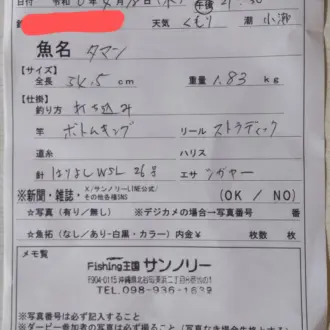 日付 令和6年4月18日(木) 午後 21:30
天気 くもり 潮 小潮
魚名 タマン
【サイズ】
全長 54.5 cm 重量 1.83 kg
【仕掛】
釣り方 打ち込み
竿 ボトムキング リール ストラディック
道糸 ハリス
針 はりよし WSL 26号 エサ シガヤー
※新聞・雑誌・X/サンノリーLINE公式/その他各種SNS (OK / NO)
☆写真(有り/無し) ※デジカメの場合→写真番号 番
☆魚拓(なし/あり-白黒・カラー) 内金¥ 枚数 枚
メモ覧
Fishing王国 サンノリー
〒904-0115沖縄県北谷町美浜二丁目
TEL.098-936-1639
※写真番号は必ず記入すること
※ダービー参加者の写真は必ず撮ること